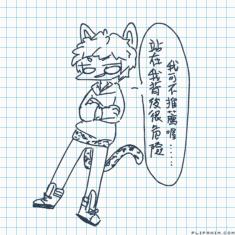 我可不推薦喔……
站在我背後很危險
FLIPANIM.COM